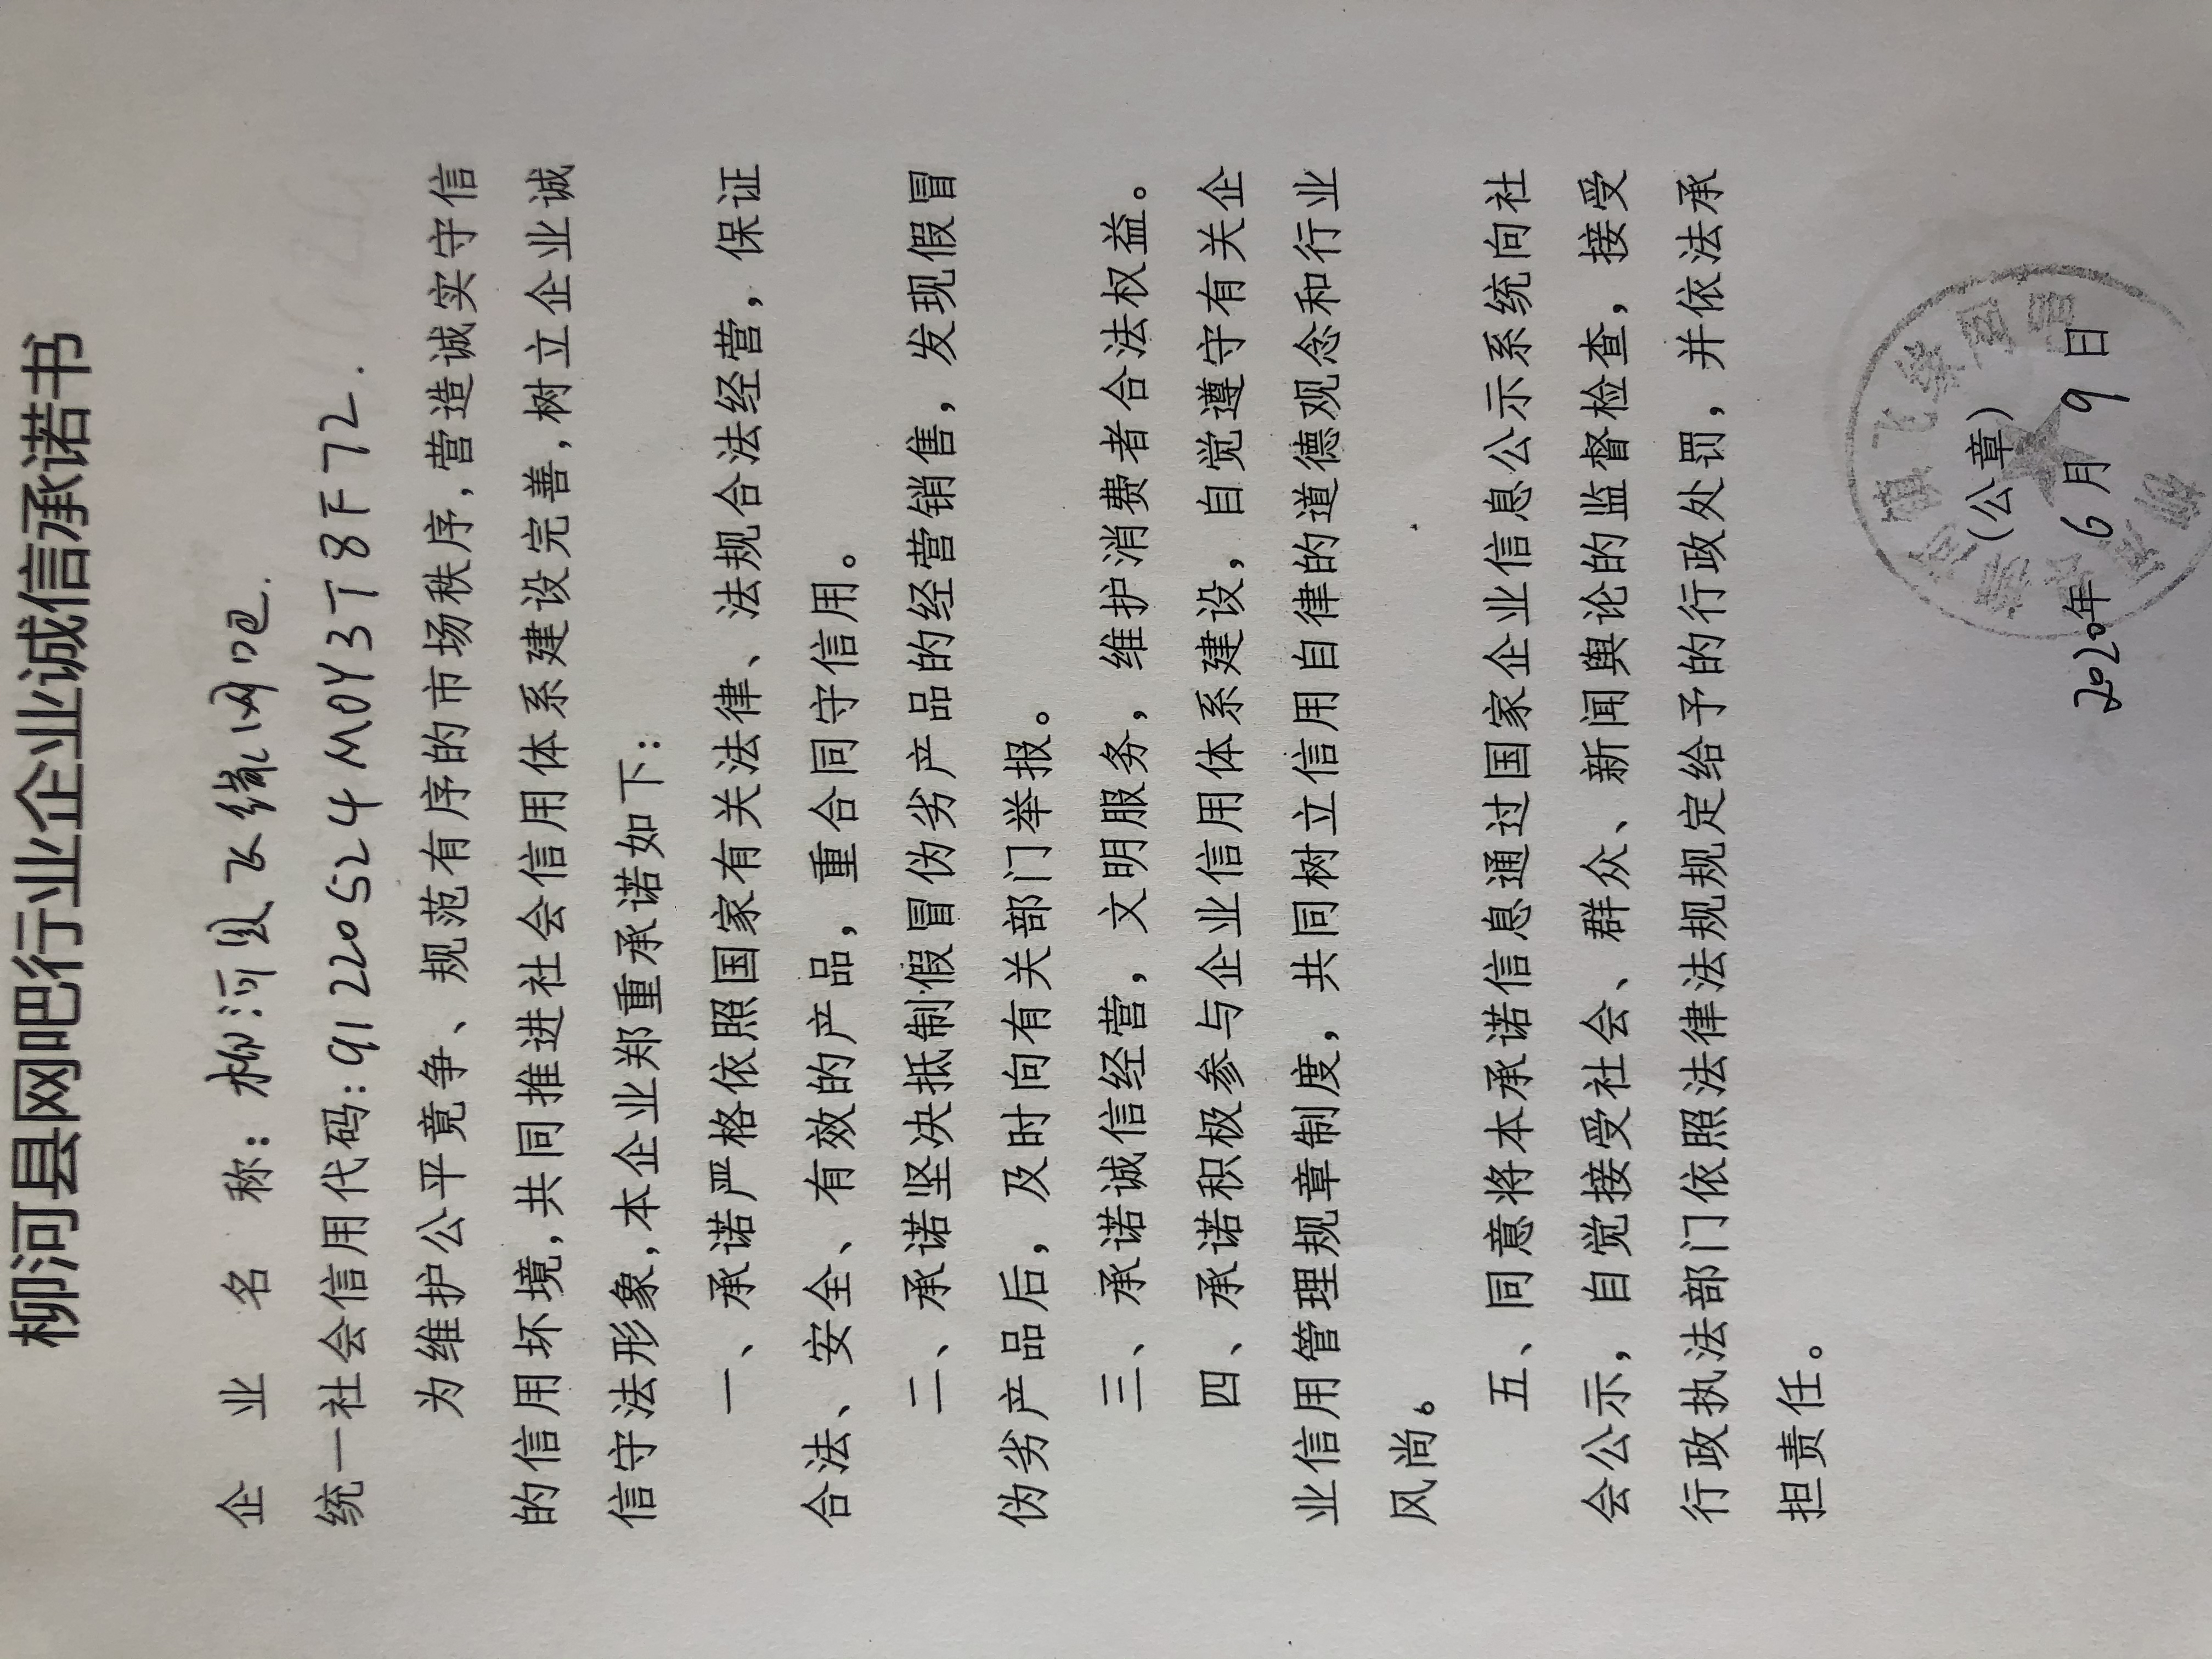 柳河县网吧行业企业诚信承诺书
企业名称：柳河县飞缘网吧.
统一社会信用代码：91220524M0Y3T8F72.
为维护公平竟争、规范有序的市场秩序,营造诚实守信
的信用坏境,共同推进社会信用体系建设完善,树立企业诚
信守法形象,本企业郑重承诺如下：
一、承诺严格依照国家有关法律、法规合法经营，保证
合法、安全、有效的产品，重合同守信用。
二、承诺坚决抵制假冒伪劣产品的经营销售，发现假冒
伪劣产品后，及时向有关部门举报。
三、承诺诚信经营，文明服务，维护消费者合法权益。
四、承诺积极参与企业信用体系建设，自觉遵守有关企
业信用管理规章制度，共同树立信用自律的道德观念和行业
风尚。
五、同意将本承诺信息通过国家企业信息公示系统向社
会公示，自觉接受社会、群众、新闻舆论的监督检查，接受
行政执法部门依照法律法规规定给予的行政处罚，并依法承
担责任。
（公章）
2020年6月9日
镇飞缘网吧